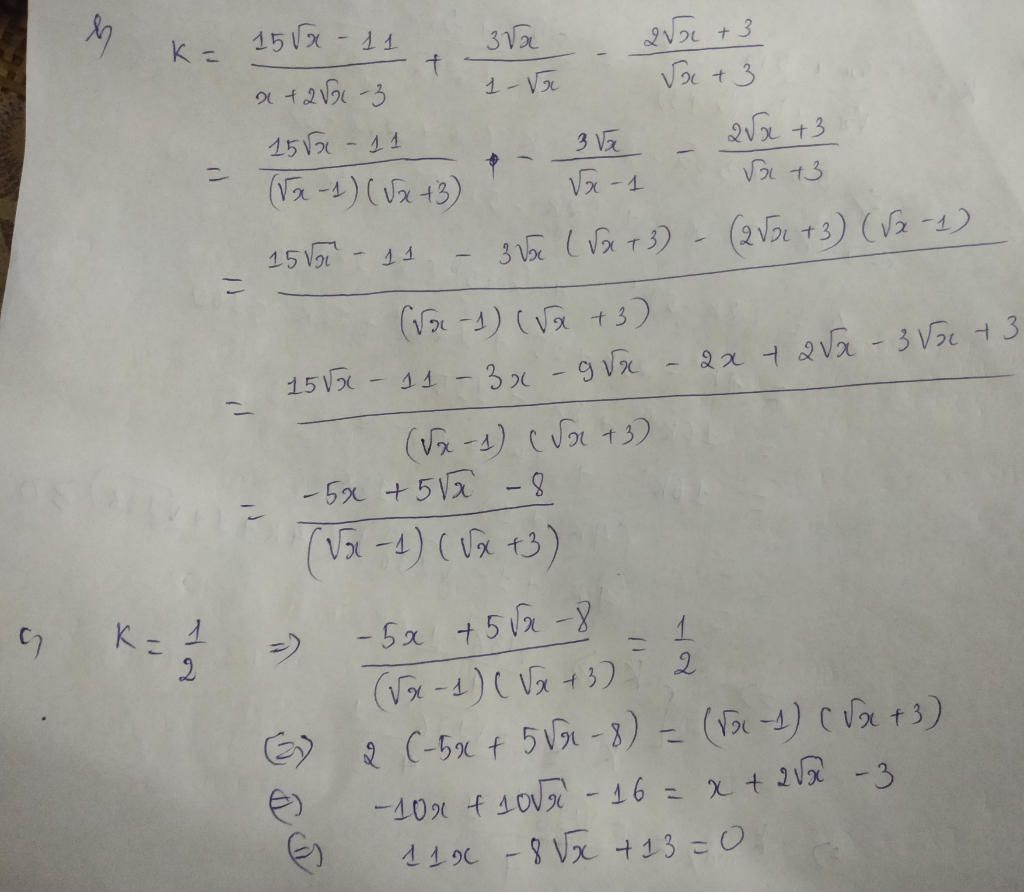 b) K = (15√x - 11)/(x + 2√x - 3) + 3√x/(1 - √x) - (2√x + 3)/(√x + 3)
= (15√x - 11)/((√x - 1)(√x + 3)) - 3√x/(√x - 1) - (2√x + 3)/(√x + 3)
= (15√x - 11 - 3√x (√x + 3) - (2√x + 3)(√x - 1))/((√x - 1)(√x + 3))
= (15√x - 11 - 3x - 9√x - 2x + 2√x - 3√x + 3)/((√x - 1)(√x + 3))
= (-5x + 5√x - 8)/((√x - 1)(√x + 3))
c) K = 1/2 => (-5x + 5√x - 8)/((√x - 1)(√x + 3)) = 1/2
(=) 2 (-5x + 5√x - 8) = (√x - 1)(√x + 3)
(=) -10x + 10√x - 16 = x + 2√x - 3
(=) 11x - 8√x + 13 = 0